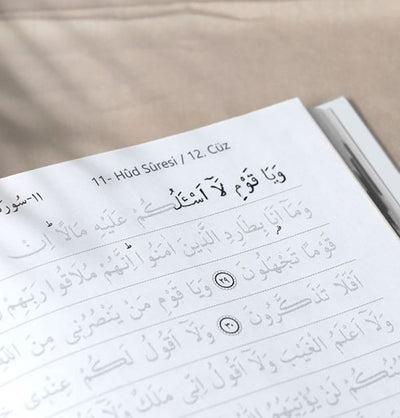 11- Hûd Sûresi / 12. Cüz
١١-سُورَة
وَيَا قَوْمِ لَآ اَسْـَٔلُكُمْ عَلَيْهِ مَالًاۜ اِنْ
وَمَٓا اَنَا۬ بِطَارِدِ الَّذ۪ينَ اٰمَنُواۜ اِنَّهُمْ مُلَاقُوا رَبِّهِمْ
قَوْمًا تَجْهَلُونَ ﴿٢٩﴾ وَيَا قَوْمِ مَنْ يَنْصُرُن۪ي مِنَ اللّٰهِ
اَفَلَا تَذَكَّرُونَ ﴿٣٠﴾ وَلَٓا اَقُولُ لَكُمْ عِنْد۪ي
وَلَٓا اَعْلَمُ الْغَيْبَ وَلَٓا اَقُولُ اِنّ۪ي مَلَكٌ وَلَٓا
لَنْ يُؤْتِيَهُمُ